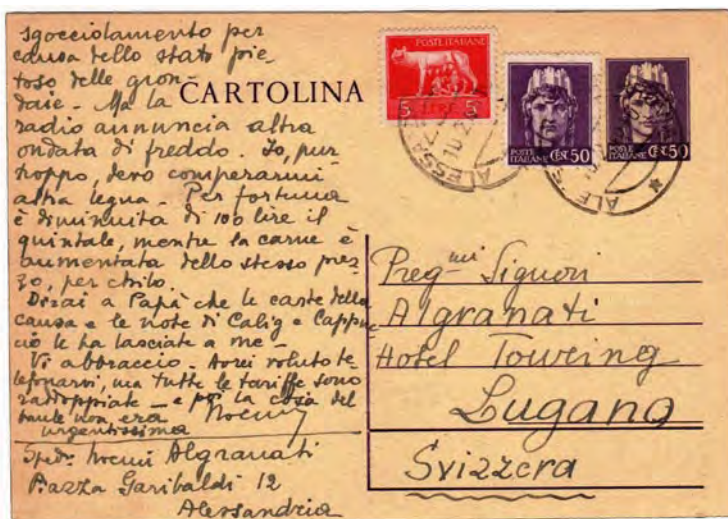 sgocciolamento per
causa dello stato pie-
toso delle gron-
daie - Ma la
radio annuncia altra
ondata di freddo. Io, pur
troppo, devo comperarmi
altra legna - Per fortuna
è diminuita di 100 lire il
quintale, mentre la carne è
aumentata dello stesso prez-
zo, per chilo.
Dirai a Papà che le carte della
causa e le note di Calig e Cappuc
ciò le ha lasciate a me -
Vi abbraccio - Avrei voluto te-
lefonarvi, ma tutte le tariffe sono
raddoppiate - e poi la cosa del
baule non era
urgentissima
Noemi
Sped. Noemi Algranati
Piazza Garibaldi 12
Alessandria
CARTOLINA
POSTE ITALIANE
5 LIRE 5
POSTE ITALIANE CEN 50
POSTE ITALIANE CEN 50
Preg-mi Signori
Algranati
Hotel Toureing
Lugano
Svizzera